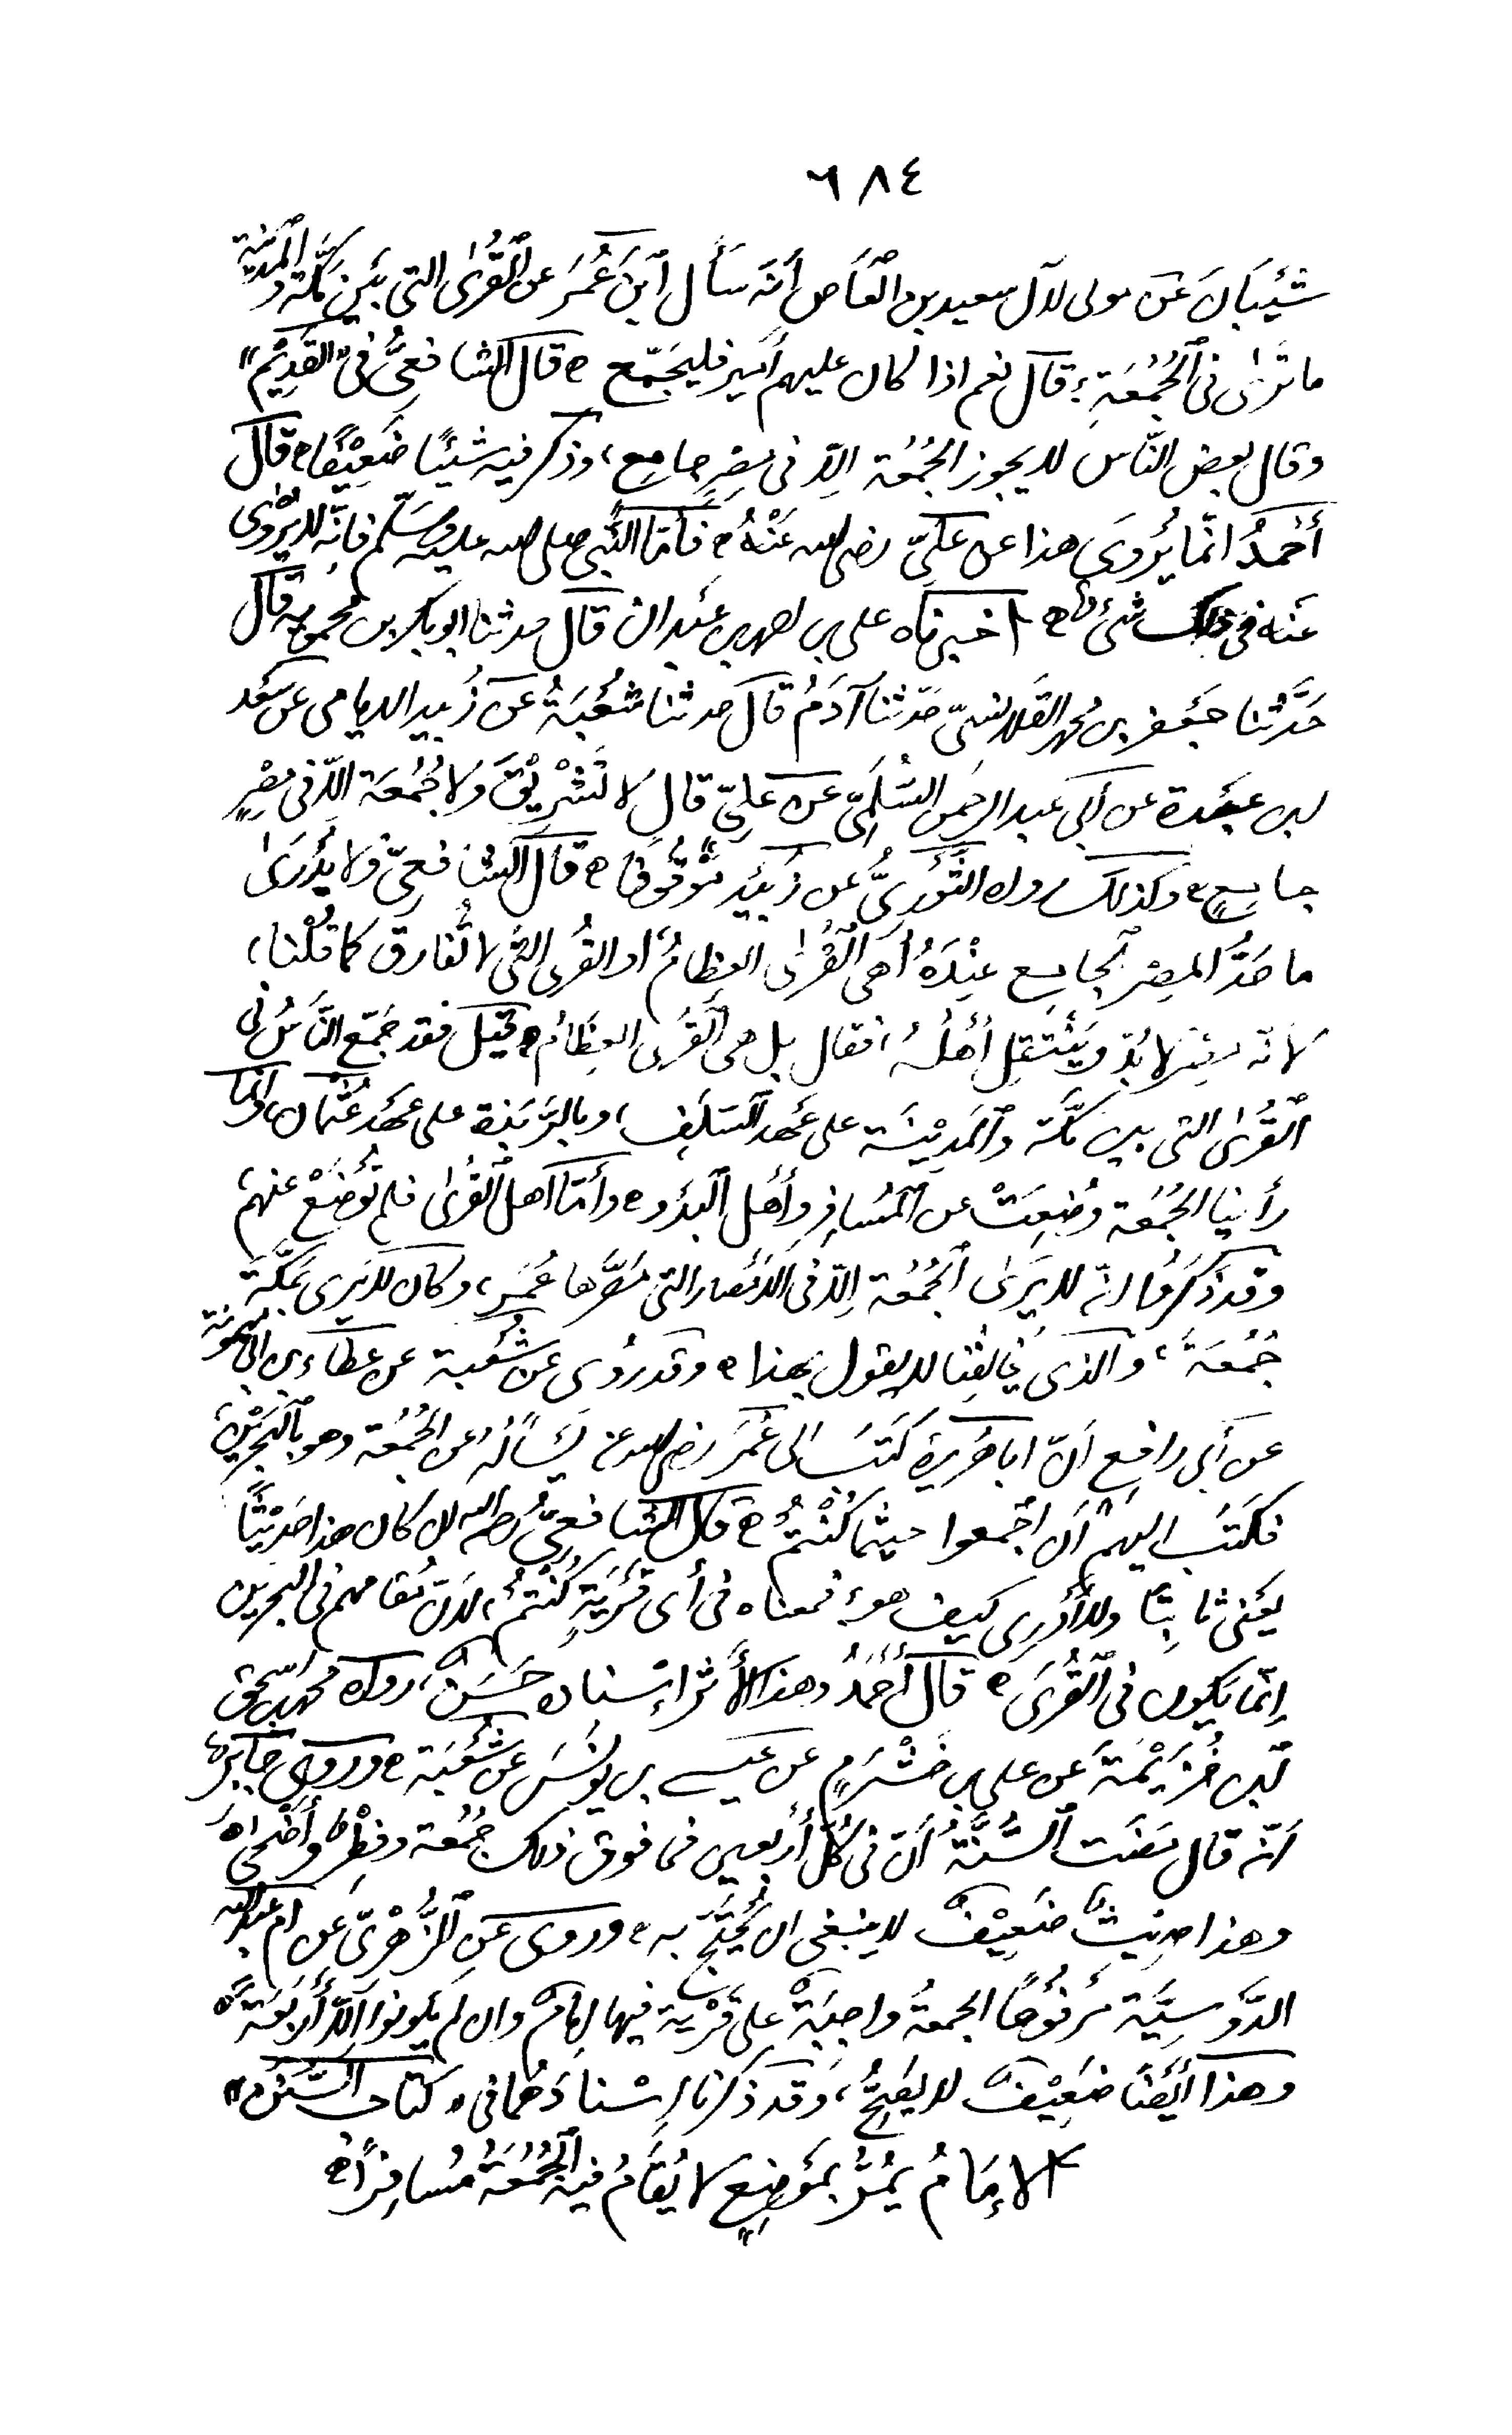 ٦٨٤
شَيْبَانَ عَن مولى لآل سعيد بن ٱلْعَاص أَنّه سَأَل ٱبْنَ عُمَرَ عن ٱلْقُرىٰ التى بَيْنَ مَكّة وَٱلْمَدينَة
ما تَرىٰ فى ٱلْجُمُعَةِ؟ قال نعم اذا كان عليهم أَمير فليجَمّع ۞ قال الشافعىُّ فى "القَدِيْم"
وقال بعض النّاس لا يجوز الجُمُعَة إلّا فى مِصْرٍ جامِع، وذكر فيه شَيْئًا ضَعِيْفًا ۞ قال
أَحْمَدُ انّما يُرْوَى هذا عن عَلىّ رضى الله عَنْهُ ۞ فَأَمّا النَّبى صلى الله عليه وسَلّم فانّه لا يُرْوٰى
عَنه فى ذلك شئ ۞ اخبرناه على بن احمد بن عَبْدان قال حدثنا ابو بكر بن محمويه قال
حَدَّثنا جَعْفر بن محمد القلانسىّ حَدّثنا آدَمُ قال حدثنا شُعْبَةُ عن زُبيد الايامى عن سَعْد
ابن عبيدة عن أبى عبد الرحمن السُّلَمىّ عن علىّ قال لا تَشْرِيْقَ وَلا جُمُعَة إلّا فى مِصْرٍ
جامعٍ ۞ وكذلك رواه الثَّوْرىُّ عن زُبَيْد مَوْقُوفًا ۞ قال الشافعىّ ولا يُدْرَىٰ
ما حَدُّ المِصْر ٱلجامع عِنْدَهُ أَهى ٱلْقُرىٰ العِظامُ أو القُرى التى لا تُفارق كما قُلْنا،
لانّه يغير لا بدّ ويَنْتَقِل أَهْلُهُ، فقال بل هى ٱلْقُرى العِظَامُ ۞ قيل فقد جَمّع النَّاسُ فى
ٱلْقُرىٰ التى بين مَكّة وَٱلْمَدِيْنَة على عَهْد ٱلسَلَفِ، وبالرَّبَذة على عَهْد عُثْمان، وانّما
رأينا الجُمُعَة وُضِعَتْ عن ٱلْمُسافِرِ وأَهْل ٱلْبَدْو ۞ وأَمّا اهل ٱلْقُرىٰ فلم تُوضَعْ عنهم
وقد ذَكَرُوا انّه لا يَرىٰ ٱلْجُمُعَة إلّا فى الأمْصار التى مَصَّرها عُمَرُ، وكان لا يرى بمَكّة
جُمُعَةً، والذى يُخالِفُنا لا يقول بهذا ۞ وقد رُوى عن شُعْبة عن عَطَاء بن ابى ميمونة
عن أَبى رافع انّ ابا هُريرة كَتَبَ الى عُمَرَ رضى الله عنه يَسْأَلُهُ عن الجُمُعَة وهو بٱلْبَحْرَيْن
فكتَبَ اليهم أَن اجْمعوا حيثما كُنْتُمْ ۞ قال الشافعىُّ رحمه الله ان كان هذا حَدِيْثًا
يَعْنى ثابِتًا ولا أَدْرى كيف هو؟ فمعناه فى أَى قَرْيَةٍ كُنْتُمْ، لانّ مُقامهم فى البحرين
إنّما يكون فى ٱلْقُرَى ۞ قال أَحْمَدُ وهذا الأَثر إسْناده حَسَن، رواه محمد بن اسْحٰق
ابن خُزَيْمَة عن على بن خَشْرَمٍ عن عيسى بن يُونُسَ عن شُعْبَة ۞ ورُوى عن جابر
انّه قال مَضَت ٱلسُّنَّةُ أَنّ فى كُلّ أَرْبعين فما فوق ذلك جُمُعَة وفِطْر وأَضْحىٰ
وهذا حديثٌ ضَعِيْفٌ لا ينبغى ان يُحْتَجَّ به ۞ وروى عن ٱلزُّهْرىّ عن ام عبد الله
الدَّوسِيَّة مَرْفُوعًا الجمعةُ واجِبَةٌ على قَرْية فيها إمامٌ وان لم يكونوا إلّا أَرْبَعَةً
وهذا أَيْضًا ضَعِيْفٌ لا يَصِحُّ، وَقد ذكرنا إسْنادَهُما فى "كتاب السُّنَنْ"
الإمَامُ يَمُرُّ بمَوْضِعٍ لا يُقَامُ فيه ٱلْجُمُعَةُ مُسافِرًا ۞